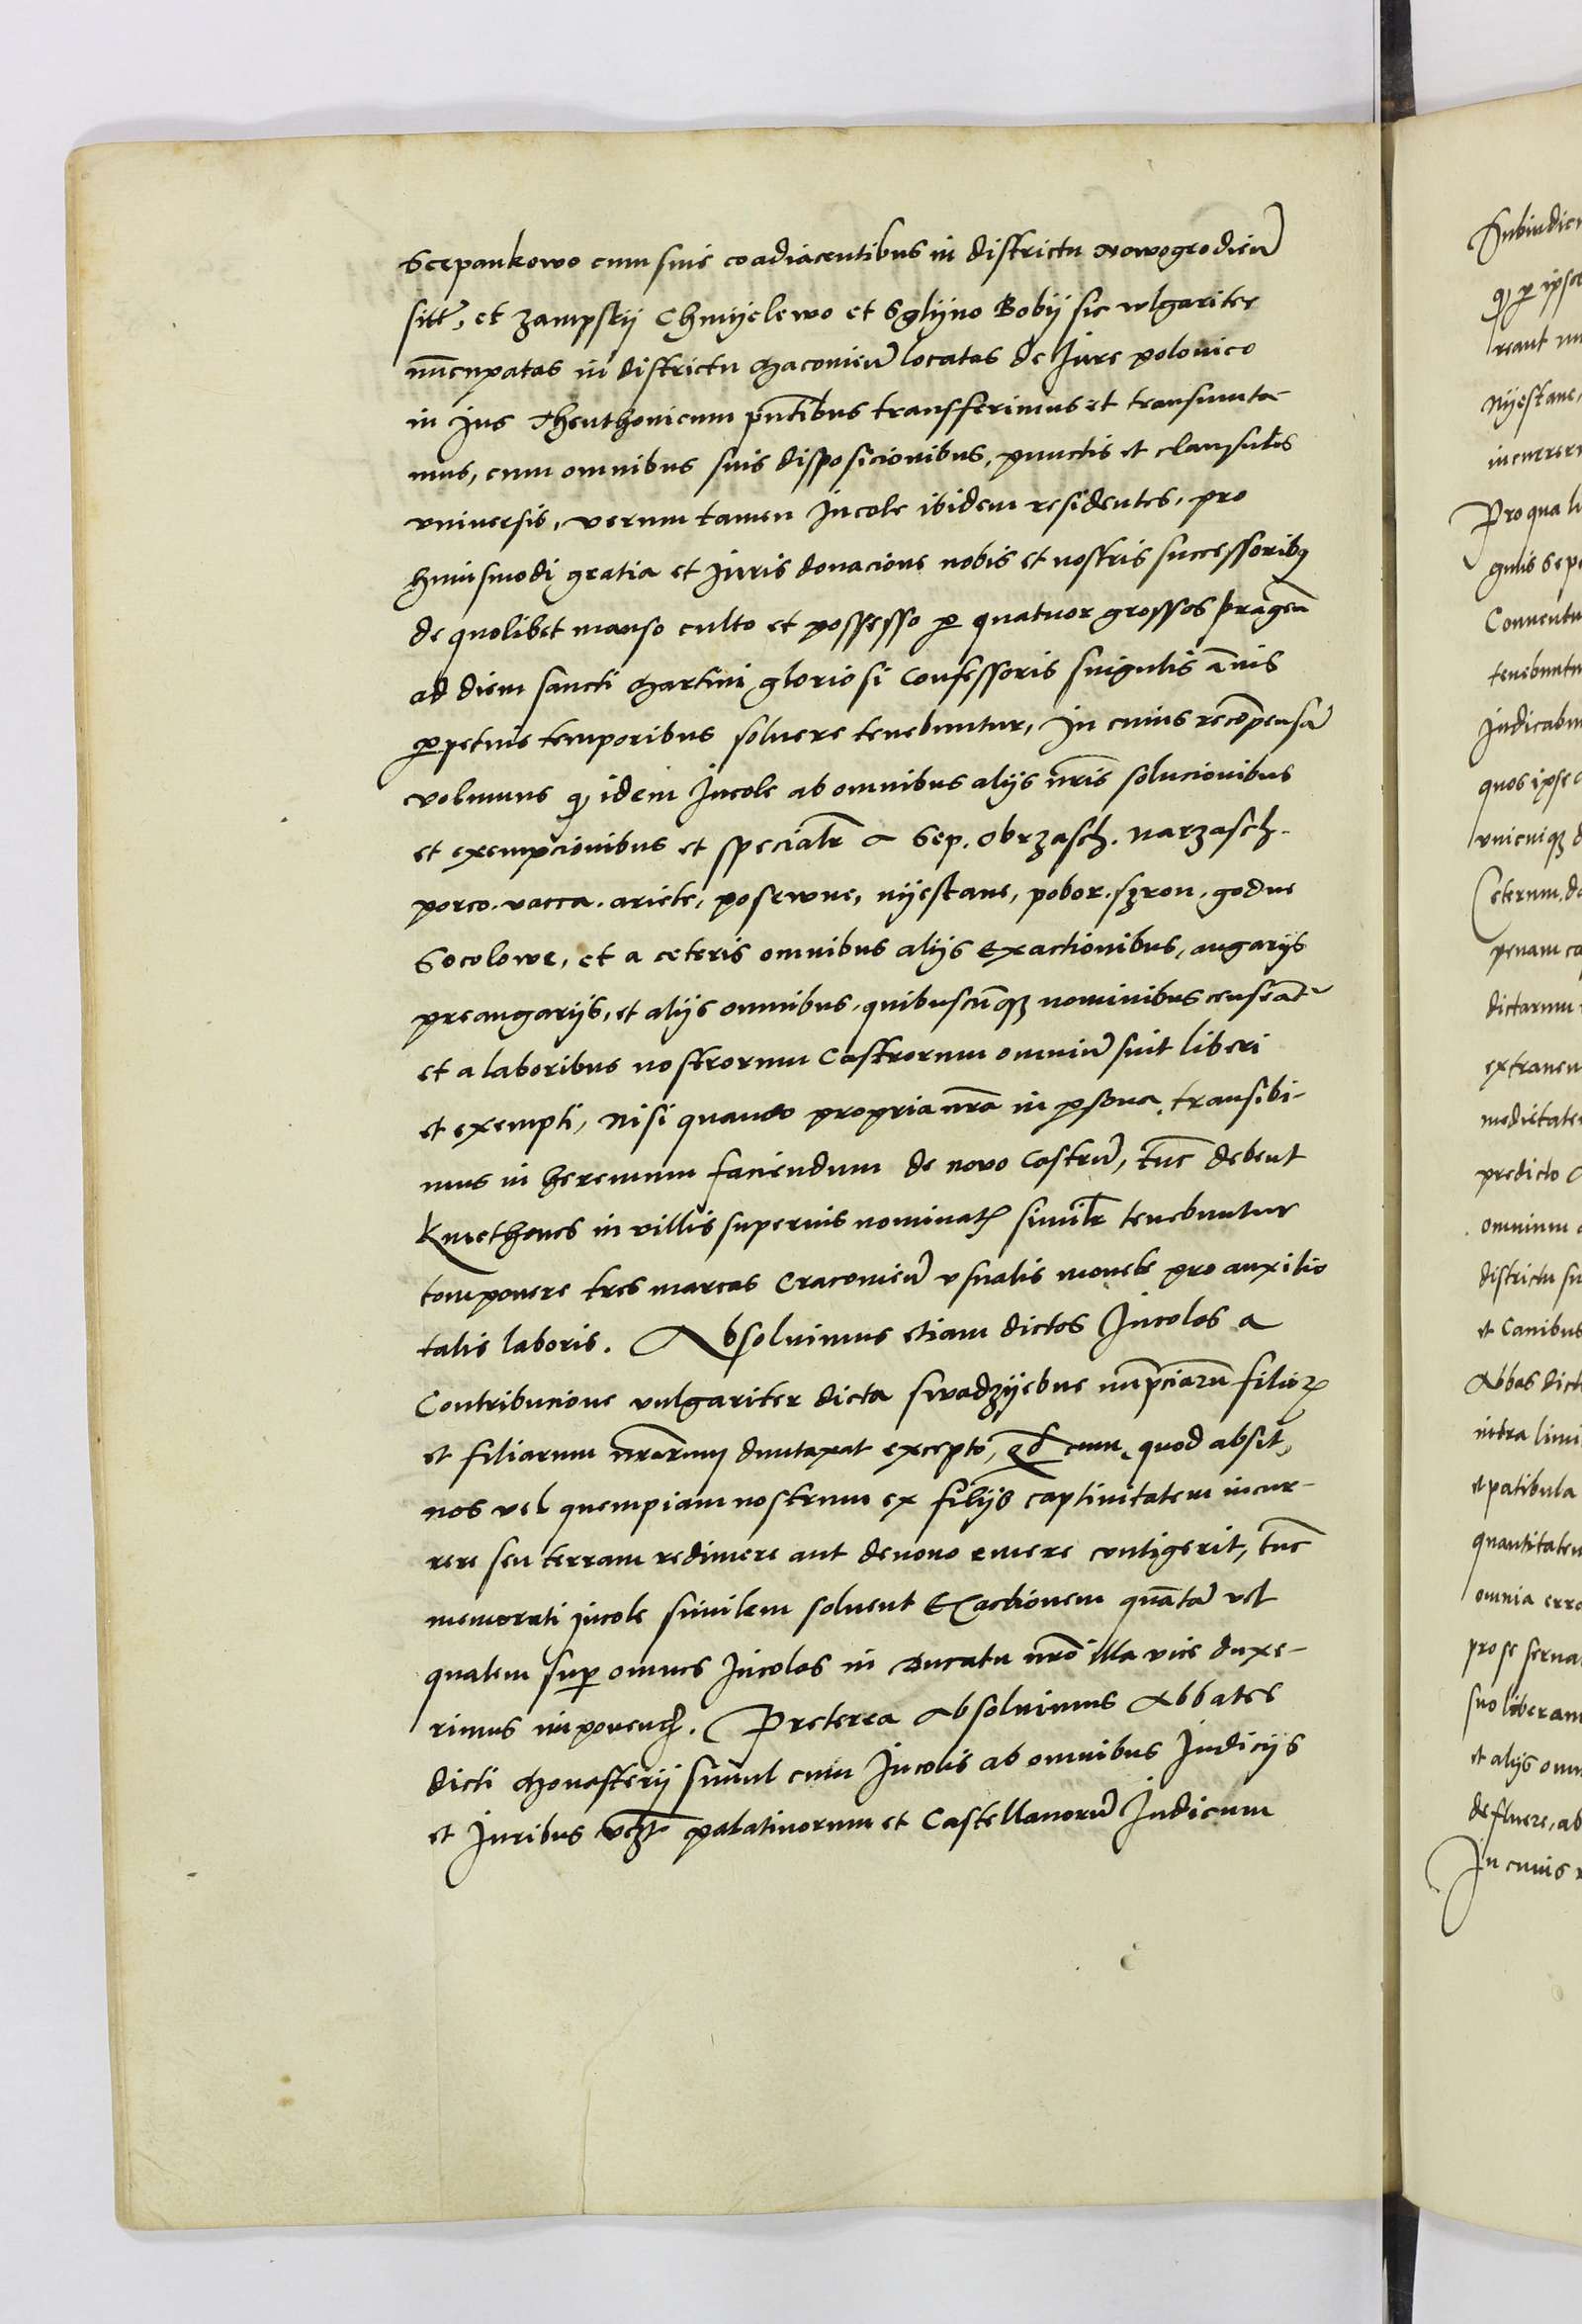 Sczepankowo cum suis coadiacentibus in districtu Nowogrodien̄
sitt̄, et Zampskij Chmijelewo et Sglijno Bobij sic vlgariter
nūcupatas in districtu Maconien̄ locatas de Jure polonico
in Jus Theuthonicum pn̄tibus transfferimus et transmuta-
mus, cum omnibus suis disposicionibus, punctis et clausulis
vniuersis, verum tamen Incole ibidem residentes, pro
huiusmodi gratia et Iuris donacione nobis et nostris successoribꝫ
de quolibet manso culto et possesso ꝑ quatuor grossos pragen̄
ad diem sancti Martini gloriosi Confessoris singulis an̄is
ꝑpetuis temporibus soluere tenebuntur, In cuius recōpensā
volumus ꝙ idem Incole ab omnibus alijs nr̄is solucionibus
et exempcionibus et specialr̄ a Sep. Obrzasch. Narzasch.
porco. vacca. ariete, posewne, nijestane, pobor. szron. godne
Socolowe, et a ceteris omnibus alijs exactionibus, angarijs
preangarijs, et alijs omnibus, quibuscūqꝫ nominibus censeant̄
et a laboribus nostrorum Castrorum omniū sint liberi
et exempti, Nisi quando propria nr̄a in ꝑsona, transibi-
mus in heremum faciendum de novo Castrū, tūc debent
Kmethones in villis superius nominatꝭ simil̄r tenebuntur
componere tres marcas Cracouien̄ vsualis monete pro auxilio
talis laboris. Absoluimus etiam dictos Incolas a
Contribucione vulgariter dicta swadzijebne nupciarū filioꝝ
et filiarum nr̄arum duntaxat excepto, qd̄ cum, quod absit,
nos vel quempiam nostrum ex filijs captiuitatem incur-
rere seu terram redimere aut denouo emere contigerit, tūc
memorati Incole similem soluent Exactionem quātā vel
qualem suꝑ omnes Incolas in Ducatu nr̄o illa vice duxe-
rimus imponend̄. Preterea absoluimus Abbates
dicti Monasterij simul cum Incolis ab omnibus Iudicijs
et Iuribus vcꝫt palatinorum et Castellanorū Iudicum
quos ipse